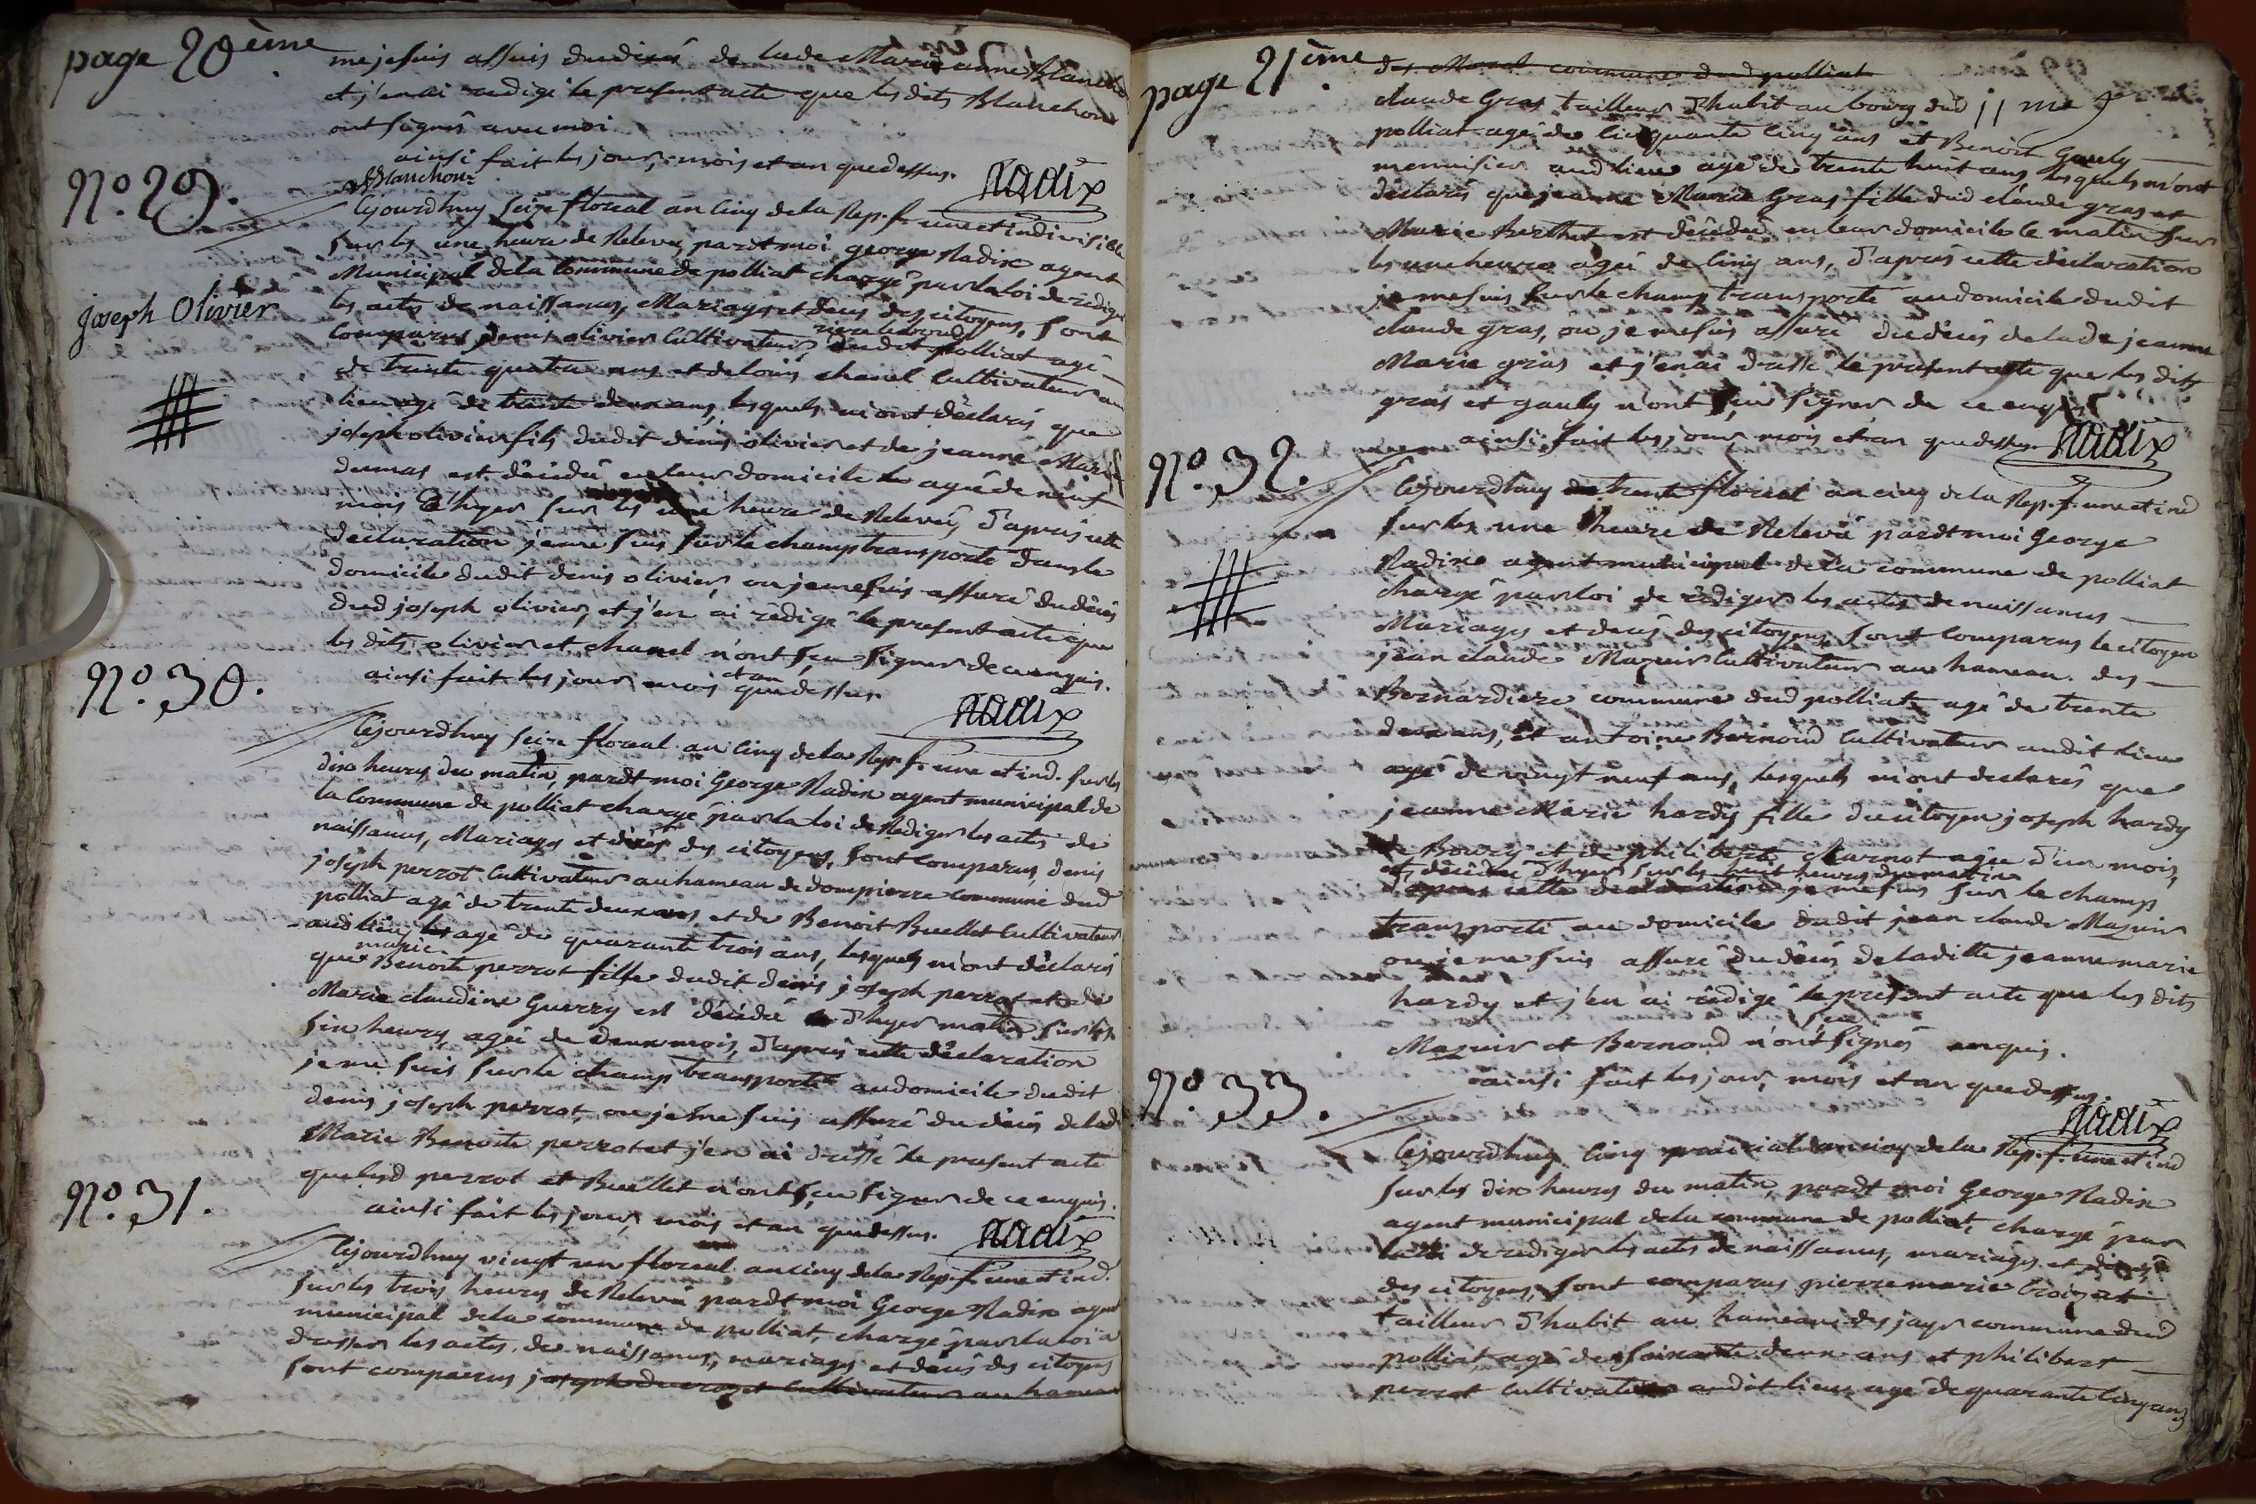 page 20ème
me je suis assuis du décès de lade Marie anne Blanchon
et j'en ai redigé le present acte que les dits Blanchon
ont signés avec moi
ainsi fait les jour, mois et an que dessus.
Blanchon
Nadix
N.º 29.
Joseph Olivier
Cejourdhuy seize floreal an cinq de la Rep. f. une et indivisible
sur les une heure de Relevée, pardt moi george Nadix agent
Municipal de la Commune de polliat chargé par la loi de rediger
les actes de naissances, Mariages et décès des citoyens, sont
comparus denis olivier Cultivateur dudit polliat agé
de trente quatre ans et de louis chanel Cultivateur au
lieu agé de trente deux ans, lesquels m'ont déclarés que
joseph olivier fils dudit denis olivier et de jeanne Marie
dumas est décédé en leur domicile agé de neuf
mois d'hyer sur les une heure de Relevée, d'après cette
declaration je me suis sur le champ transporté dans le
domicile dudit denis olivier, ou je me suis assuré du décès
dud joseph olivier, et j'en ai rédigé le present acte que
les dits olivier et chanel n'ont seu signer de ce enquis.
ainsi fait les jour, mois et an que dessus.
Nadix
N.º 30.
Cejourdhuy seize floreal an cinq de la Rep. f. une et ind. sur les
dix heures du matin, pardt moi George Nadix agent municipal de
la Commune de polliat chargé par la loi de Rediger les actes de
naissances, Mariages et décès des citoyens, sont comparus denis
joseph perrot Cultivateur au hameau de dompierre commune dud
polliat agé de trente deux ans et de Benoit Buellet Cultivateur
audlieu agé de quarante trois ans, lesquels m'ont déclarés
que marie Benoite perrot fille dudit denis joseph perrot et de
Marie claudine Guerry est décédé d'hyer matin sur les
six heures, agée de deux mois, d'après cette déclaration
je me suis sur le champ transporté au domicile dudit
denis joseph perrot, ou je me suis assuré du décès de lad
Marie Benoite perrot et j'en ai dressé le present acte
que lesd perrot et Buellet n'ont seu signer de ce enquis.
ainsi fait les jour, mois et an que dessus.
Nadix
N.º 31.
Cejourdhuy vingt un floreal an cinq de la Rep. f. une et ind.
sur les trois heures de Relevée pardt moi George Nadix agent
municipal de la commune de polliat, chargé par la loi a
dresser les actes de naissances, mariages et décès des citoyens
sont comparus joseph ducrozet Cultivateur au hameau
page 21ème
des Morel commune dud polliat
claude Gras tailleur d'habit au bourg dud
polliat agé de cinquante cinq ans et Benoit Gauly
menuisier aud lieu agé de trente huit ans lesquels m'ont
declarés que jeanne Marie Gras fille dud claude gras et
Marie Berthet est décédée en leur domicile le matin sur
les une heure agée de cinq ans, d'après cette déclaration
je me suis sur le champ transporté au domicile dudit
claude gras, où je me suis assuré du décès de lade jeanne
Marie gras et j'en ai dressé le present acte que les dits
gras et gauly n'ont seu signer de ce enquis
ainsi fait les jour mois et an que dessus.
Nadix
N.º 32.
Cejourdhuy trente floreal an cinq de la Rep. f. une et ind
sur les une heure de Relevée pardt moi George
Nadix agent municipal de la commune de polliat
chargé par loi de rédiger les actes de naissances
Mariages et décès des citoyens sont comparus le citoyen
jean claude Mazuir Cultivateur au hameau des
Bernardiere commune dud polliat agé de trente
deux ans, et antoine Bernoud Cultivateur audit lieu
agé de vingt neuf ans, lesquels m'ont declarés que
jeanne Marie hardy fille du citoyen joseph hardy
de Bourg et de philiberte charnot agée d'un mois,
est décédée d'hyer sur les huit heures du matin
d'apres cette declaration je me suis sur le champ
transporté au domicile dudit jean claude Mazuir
ou je me suis assuré du décès de laditte jeanne marie
hardy et j'en ai rédigé le present acte que les dits
Mazuir et Bernoud n'ont seu signés enquis.
ainsi fait les jour, mois et an que dessus.
Nadix
N.º 33.
Cejourdhuy cinq prairial an cinq de la Rep. f. une et ind
sur les dix heures du matin, pardt moi George Nadix
agent municipal de la commune de polliat, chargé par
la loi de rediger les actes de naissances, mariages et décès
des citoyens, sont comparus pierre marie
tailleur d'habit au hameau des jays commune dud
polliat agé de soixante deux ans et philibert
perrot cultivateur audit lieu agé de quarante cinq ans